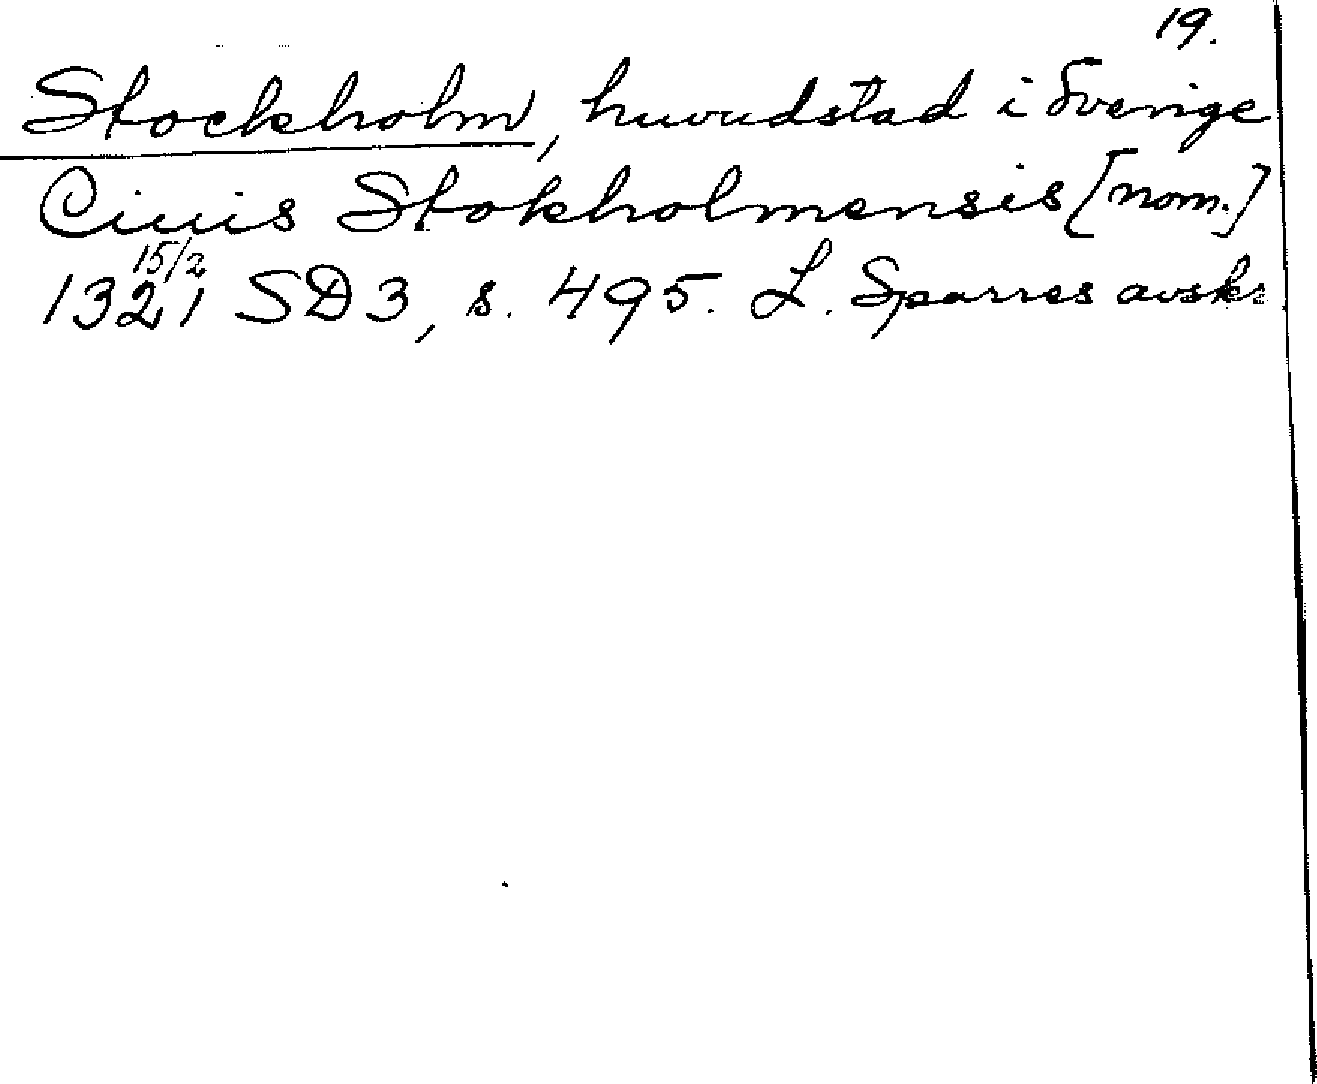 19.
Stockholm, huvudstad i Sverige
Ciuis Stokholmensis [nom.]
15/2
1321 SD 3, s. 495. L. Sparres avskr